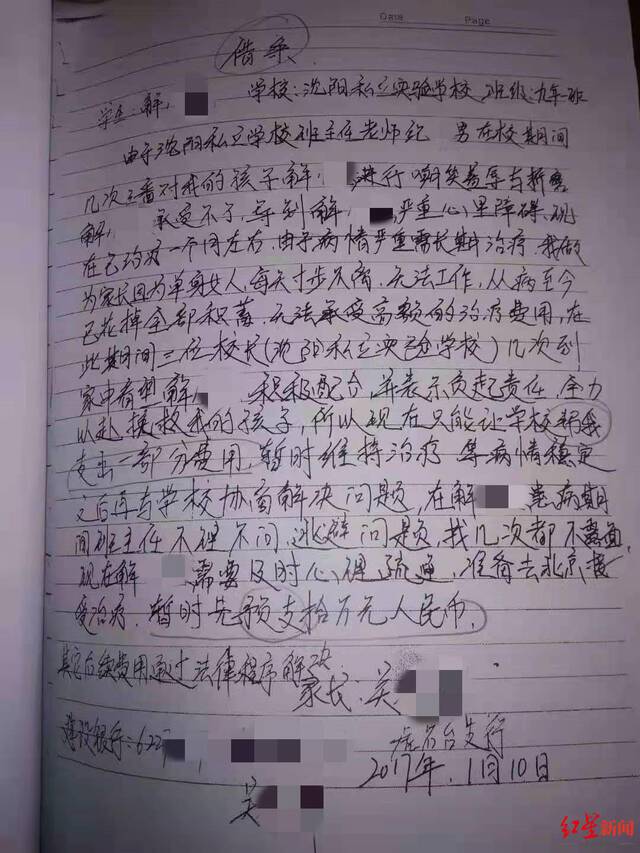 Data Page
借条
学生:解 学校:沈阳私立实验学校,班级:九年 班
由于沈阳私立学校班主任老师 男在校期间
几次三番对我的孩子解 进行嘲笑羞辱与折磨
解 承受不了,导到解 严重心里障碍,现
在已约有一个月左右,由于病情严重需长期治疗,我做
为家长因为单身女人,每天寸步不离,无法工作,从病至今
已花掉全部积蓄.无法承受高额的治疗费用,在
此期间三位校长(沈阳私立实验学校)几次到
家中看望解 积极配合,并表示负起责任,全力
以赴 援救我的孩子,所以现在只能让学校帮我
支出一部分费用,暂时维持治疗 等病情稳定
之后再与学校协商解决问题,在解 患病期
间班主任不理不问,逃避问题,找几次都不露面,
现在解 需要及时心理疏通,准备去北京接
受治疗.暂时先预支拾万元人民币.
其它后续费用通过法律程序解决.
家长:关
建设银行:622 虎石台支行
2017年.11月10日
关
红星新闻